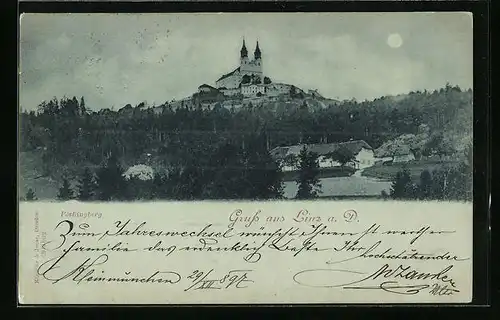 Pöstlingberg
Gruß aus Linz a. D.
Zum Jahreswechsel wünscht Ihnen sammt werther
Familie das erdenklich Beste Ihr
hochschätzender
Kleinmünchen 29/XII 897